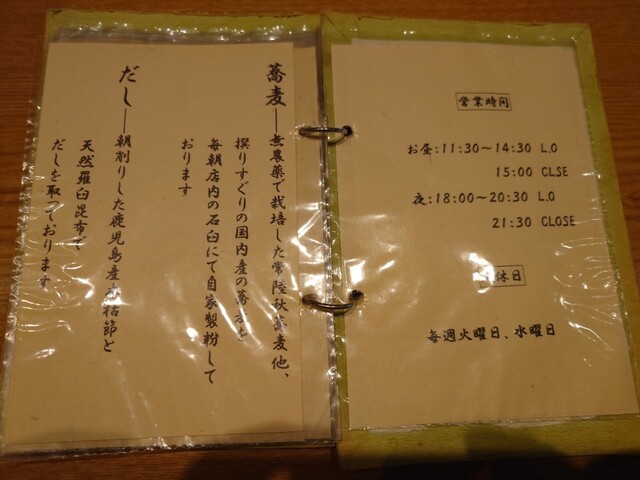 蕎麦―無農薬で栽培した常陸秋蕎麦他、
撰りすぐりの国内産の蕎麦を
毎朝店内の石臼にて自家製粉して
おります
だし―朝削りした鹿児島産本枯節と
天然羅臼昆布で
だしを取っております
営業時間
お昼:11:30〜14:30 L.O
15:00 CLSE
夜:18:00〜20:30 L.O
21:30 CLOSE
休日
毎週火曜日、水曜日